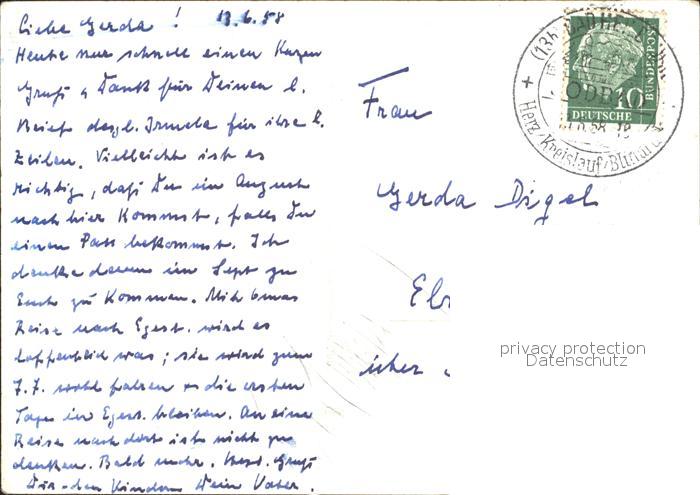 Liebe Gerda ! 13.6.58
Heute nur schnell einen Kurzen
Gruß u. Dank für Deinen l.
Brief desgl. Irmela für ihre l.
Zeilen. Vielleicht ist es
richtig, daß Du im August
nach hier Kommst, falls Du
einen Pass bekommst. Ich
denke dann im Sept zu
Euch zu Kommen. Mit
Reise nach Egest. wird es
hoffentlich was; sie wird zum
7.7. wohl fahren u die ersten
Tage in Egest. bleiben. An eine
Reise nach dort ist nicht zu
denken. Bald mehr. Herzl. Gruß
Dir u. den Kindern Dein Vater.
Frau
Gerda Digel
privacy protection
Datenschutz
10
DEUTSCHE
BUNDESPOST
(13b) BAD
Herz-Kreislauf-Blutdr